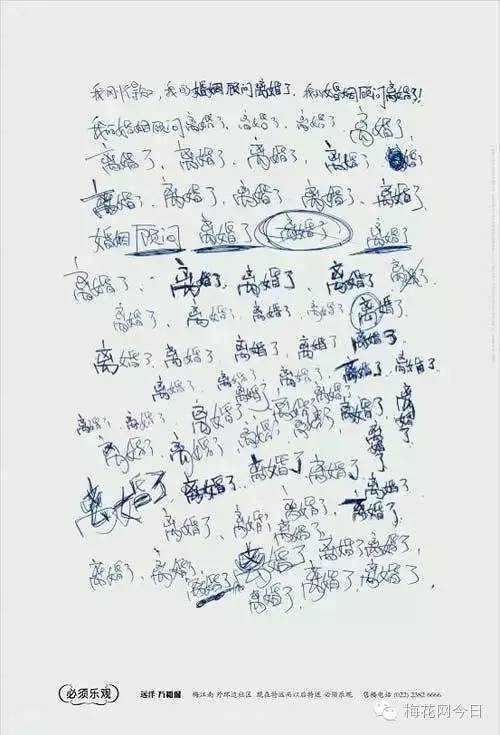 我刚得知，我的婚姻顾问离婚了，我的婚姻顾问离婚了！
我的婚姻顾问离婚了、离婚了、离婚了、离婚了、
离婚了、离婚了、离婚了、离婚了、离婚
离婚了、离婚了、离婚了、离婚了、离婚了、
婚姻顾问 离婚了 离婚了 离婚了
离婚了、离婚了、离婚了、离婚了、离婚了、
离婚了、离婚了、离婚了、离婚了、离婚了、
离婚了、离婚了、离婚了、离婚了、离婚了
离婚了、离婚了、离婚了、离婚了、离婚了
离婚了、离婚了、离婚了、离婚了、离婚了、离婚了
离婚了、离婚了、离婚了、离婚了、离婚了
离婚了 离婚了、离婚了、离婚了、离婚了
离婚了、离婚了、离婚了、离婚了
离婚了、离婚了、离婚了、离婚了、离婚了、
离婚了、离婚了、离婚了、离婚了、
必须乐观
远洋·万和城 梅江南 外环边社区 现在特远而以后特近 必须乐观 售楼电话 (022) 2382 6666
梅花网今日